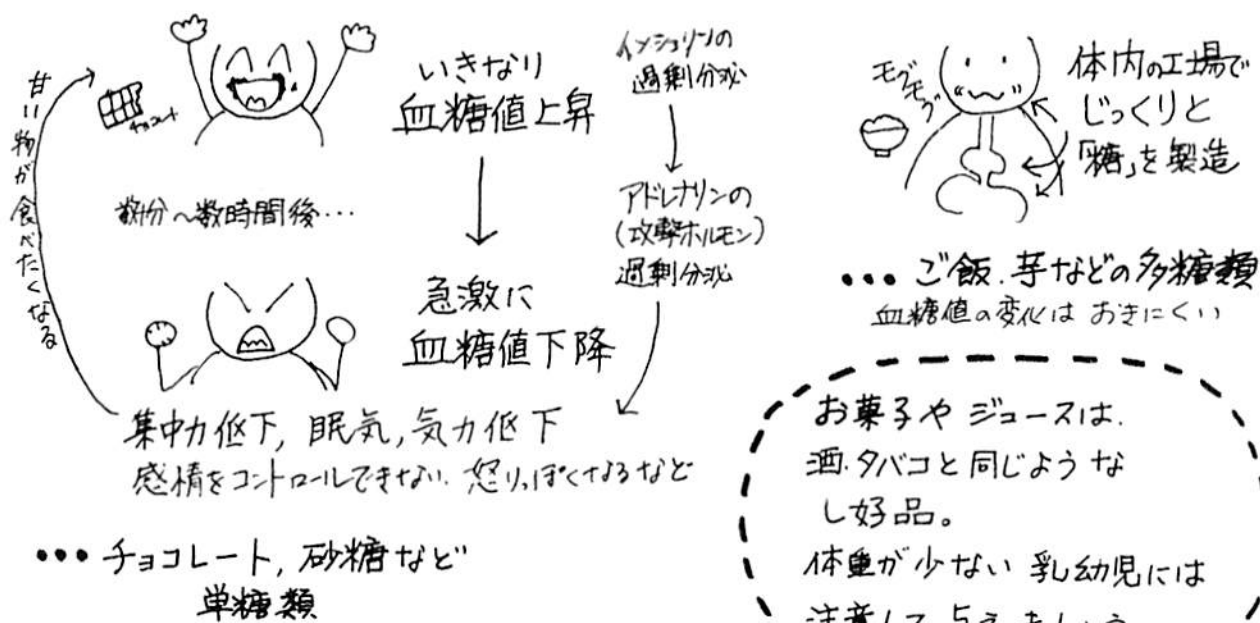 甘い物が食べたくなる
チョコレート
いきなり
血糖値上昇
数分~数時間後…
急激に
血糖値下降
インシュリンの
過剰分泌
アドレナリンの
(攻撃ホルモン)
過剰分泌
集中力低下, 眠気, 気力低下
感情をコントロールできない. 怒りっぽくなるなど
・・・チョコレート, 砂糖など
単糖類
モグモグ
体内の工場で
じっくりと
「糖」を製造
・・・ご飯.芋などの多糖類
血糖値の変化は おきにくい
お菓子や ジュースは.
酒.タバコと同じような
し好品。
体重が少ない 乳幼児には
注意して 与えましょう